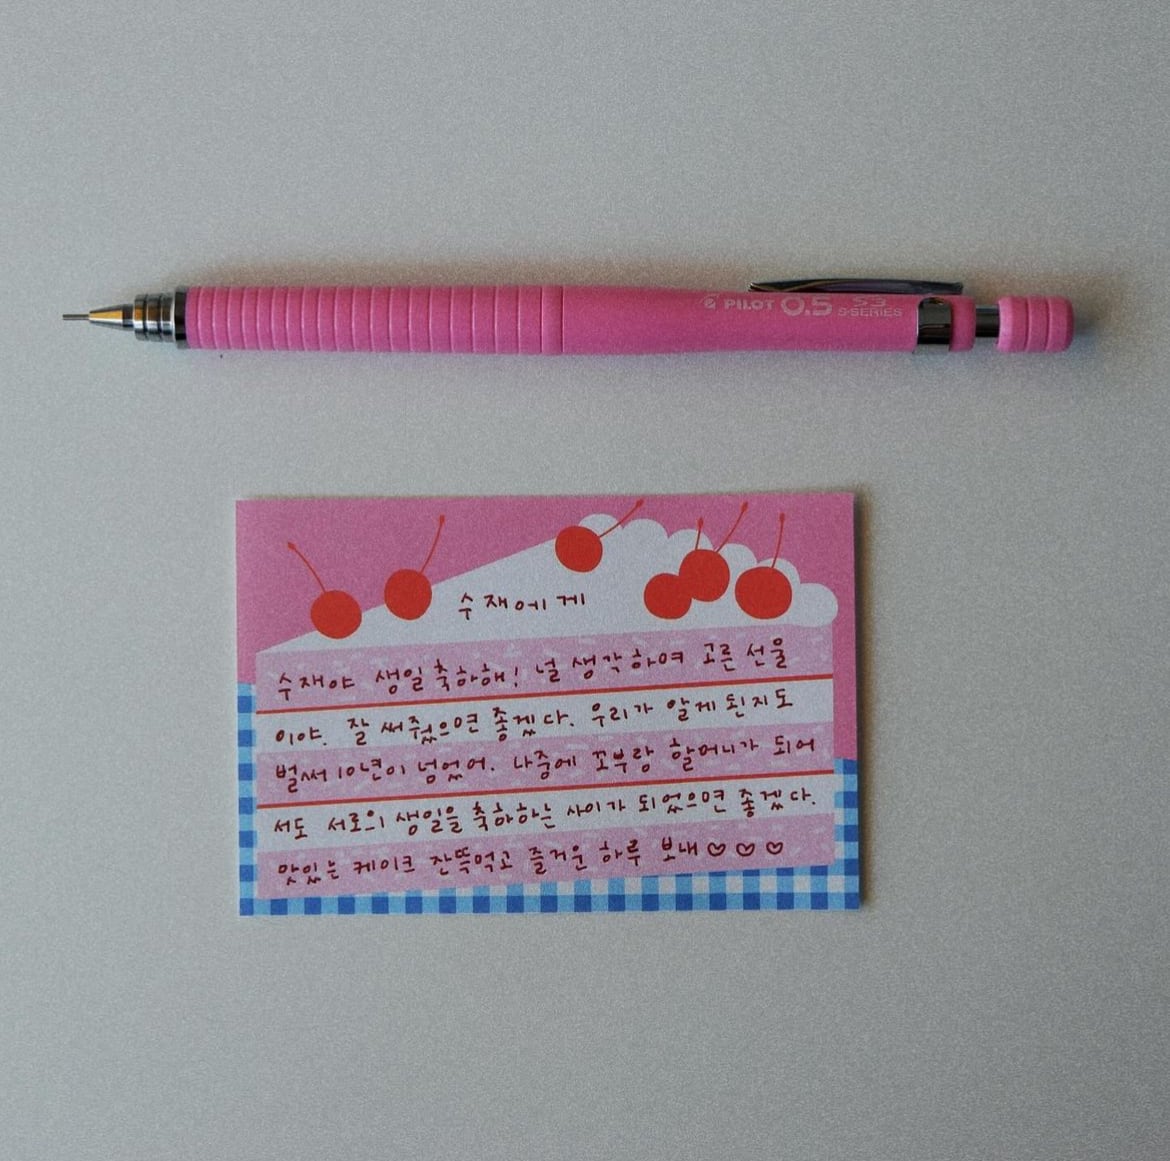 PILOT 0.5 S3
S-SERIES
수재에게
수재야 생일 축하해! 널 생각하며 고른 선물
이야. 잘 써줬으면 좋겠다. 우리가 알게 된지도
벌써 10년이 넘었어. 나중에 꼬부랑 할머니가 되어
서도 서로의 생일을 축하하는 사이가 되었으면 좋겠다.
맛있는 케이크 잔뜩먹고 즐거운 하루 보내♡♡♡